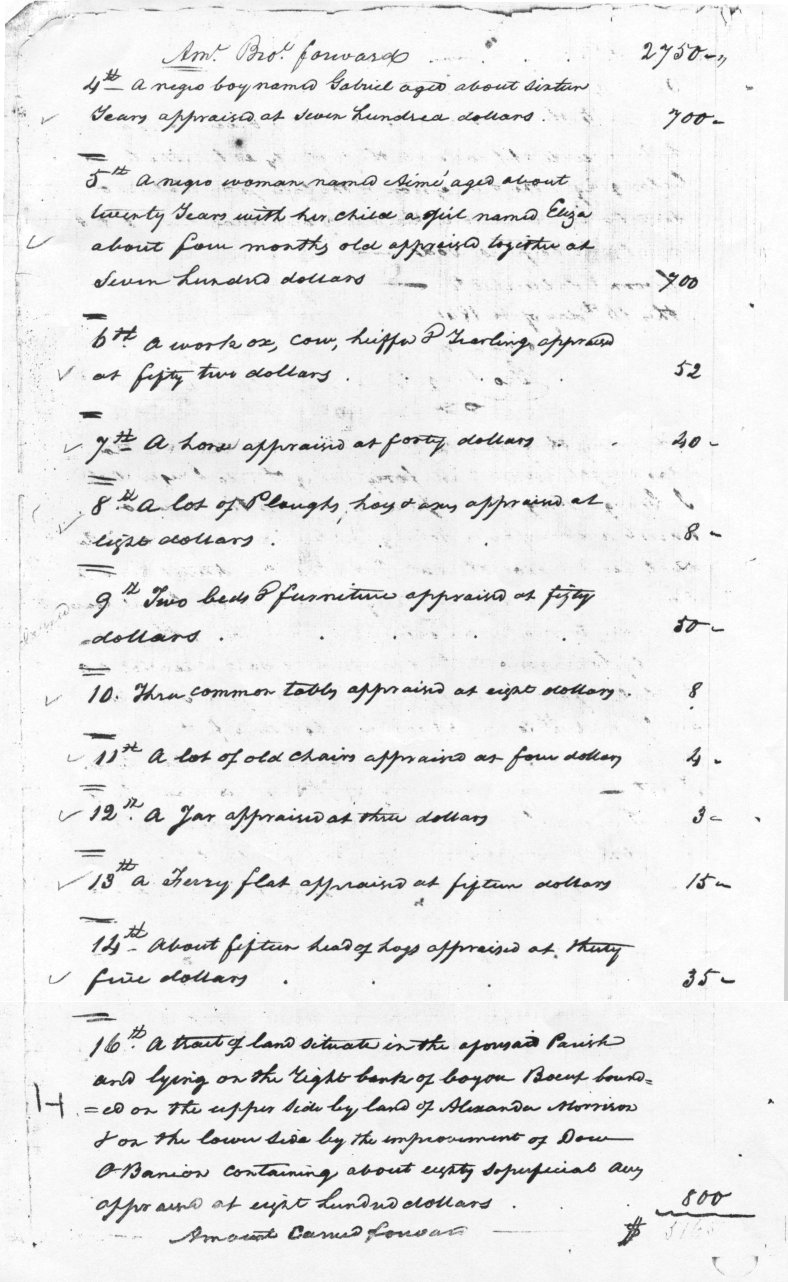 Amt. Brot. forward . . . 2750-"
4th A negro boy named Gabriel aged about sixteen
Years appraised at Seven hundred dollars . 700-
5th A negro woman named Aimé, aged about
twenty Years with her child a girl named Eliza
about four months old appraised together at
Seven hundred dollars — 700
6th A work ox, cow, heiffer & Yearling appraised
at fifty two dollars . . . 52
7th A horse appraised at forty dollars . 40-
8th A lot of Ploughs, hoes & axes appraised at
eight dollars . . 8-
9th Two beds & furniture appraised at fifty
dollars . . . . 50-
10. Three common tables appraised at eight dollars . 8
11th A lot of old chairs appraised at four dollars 4-
12th. A Jar appraised at three dollars 3-
13th A Ferry flat appraised at fifteen dollars 15-
14th About fifteen head of hogs appraised at thirty
five dollars . . . 35-
16th. A tract of land situate in the aforesaid Parish
and lying on the right bank of bayou Boeuf bound=
=ed on the upper side by land of Alexander Morrison
& on the lower side by the improvement of
O Banion containing about eighty superficial acres
appraised at eight hundred dollars . . 800
Amount Carried forward $